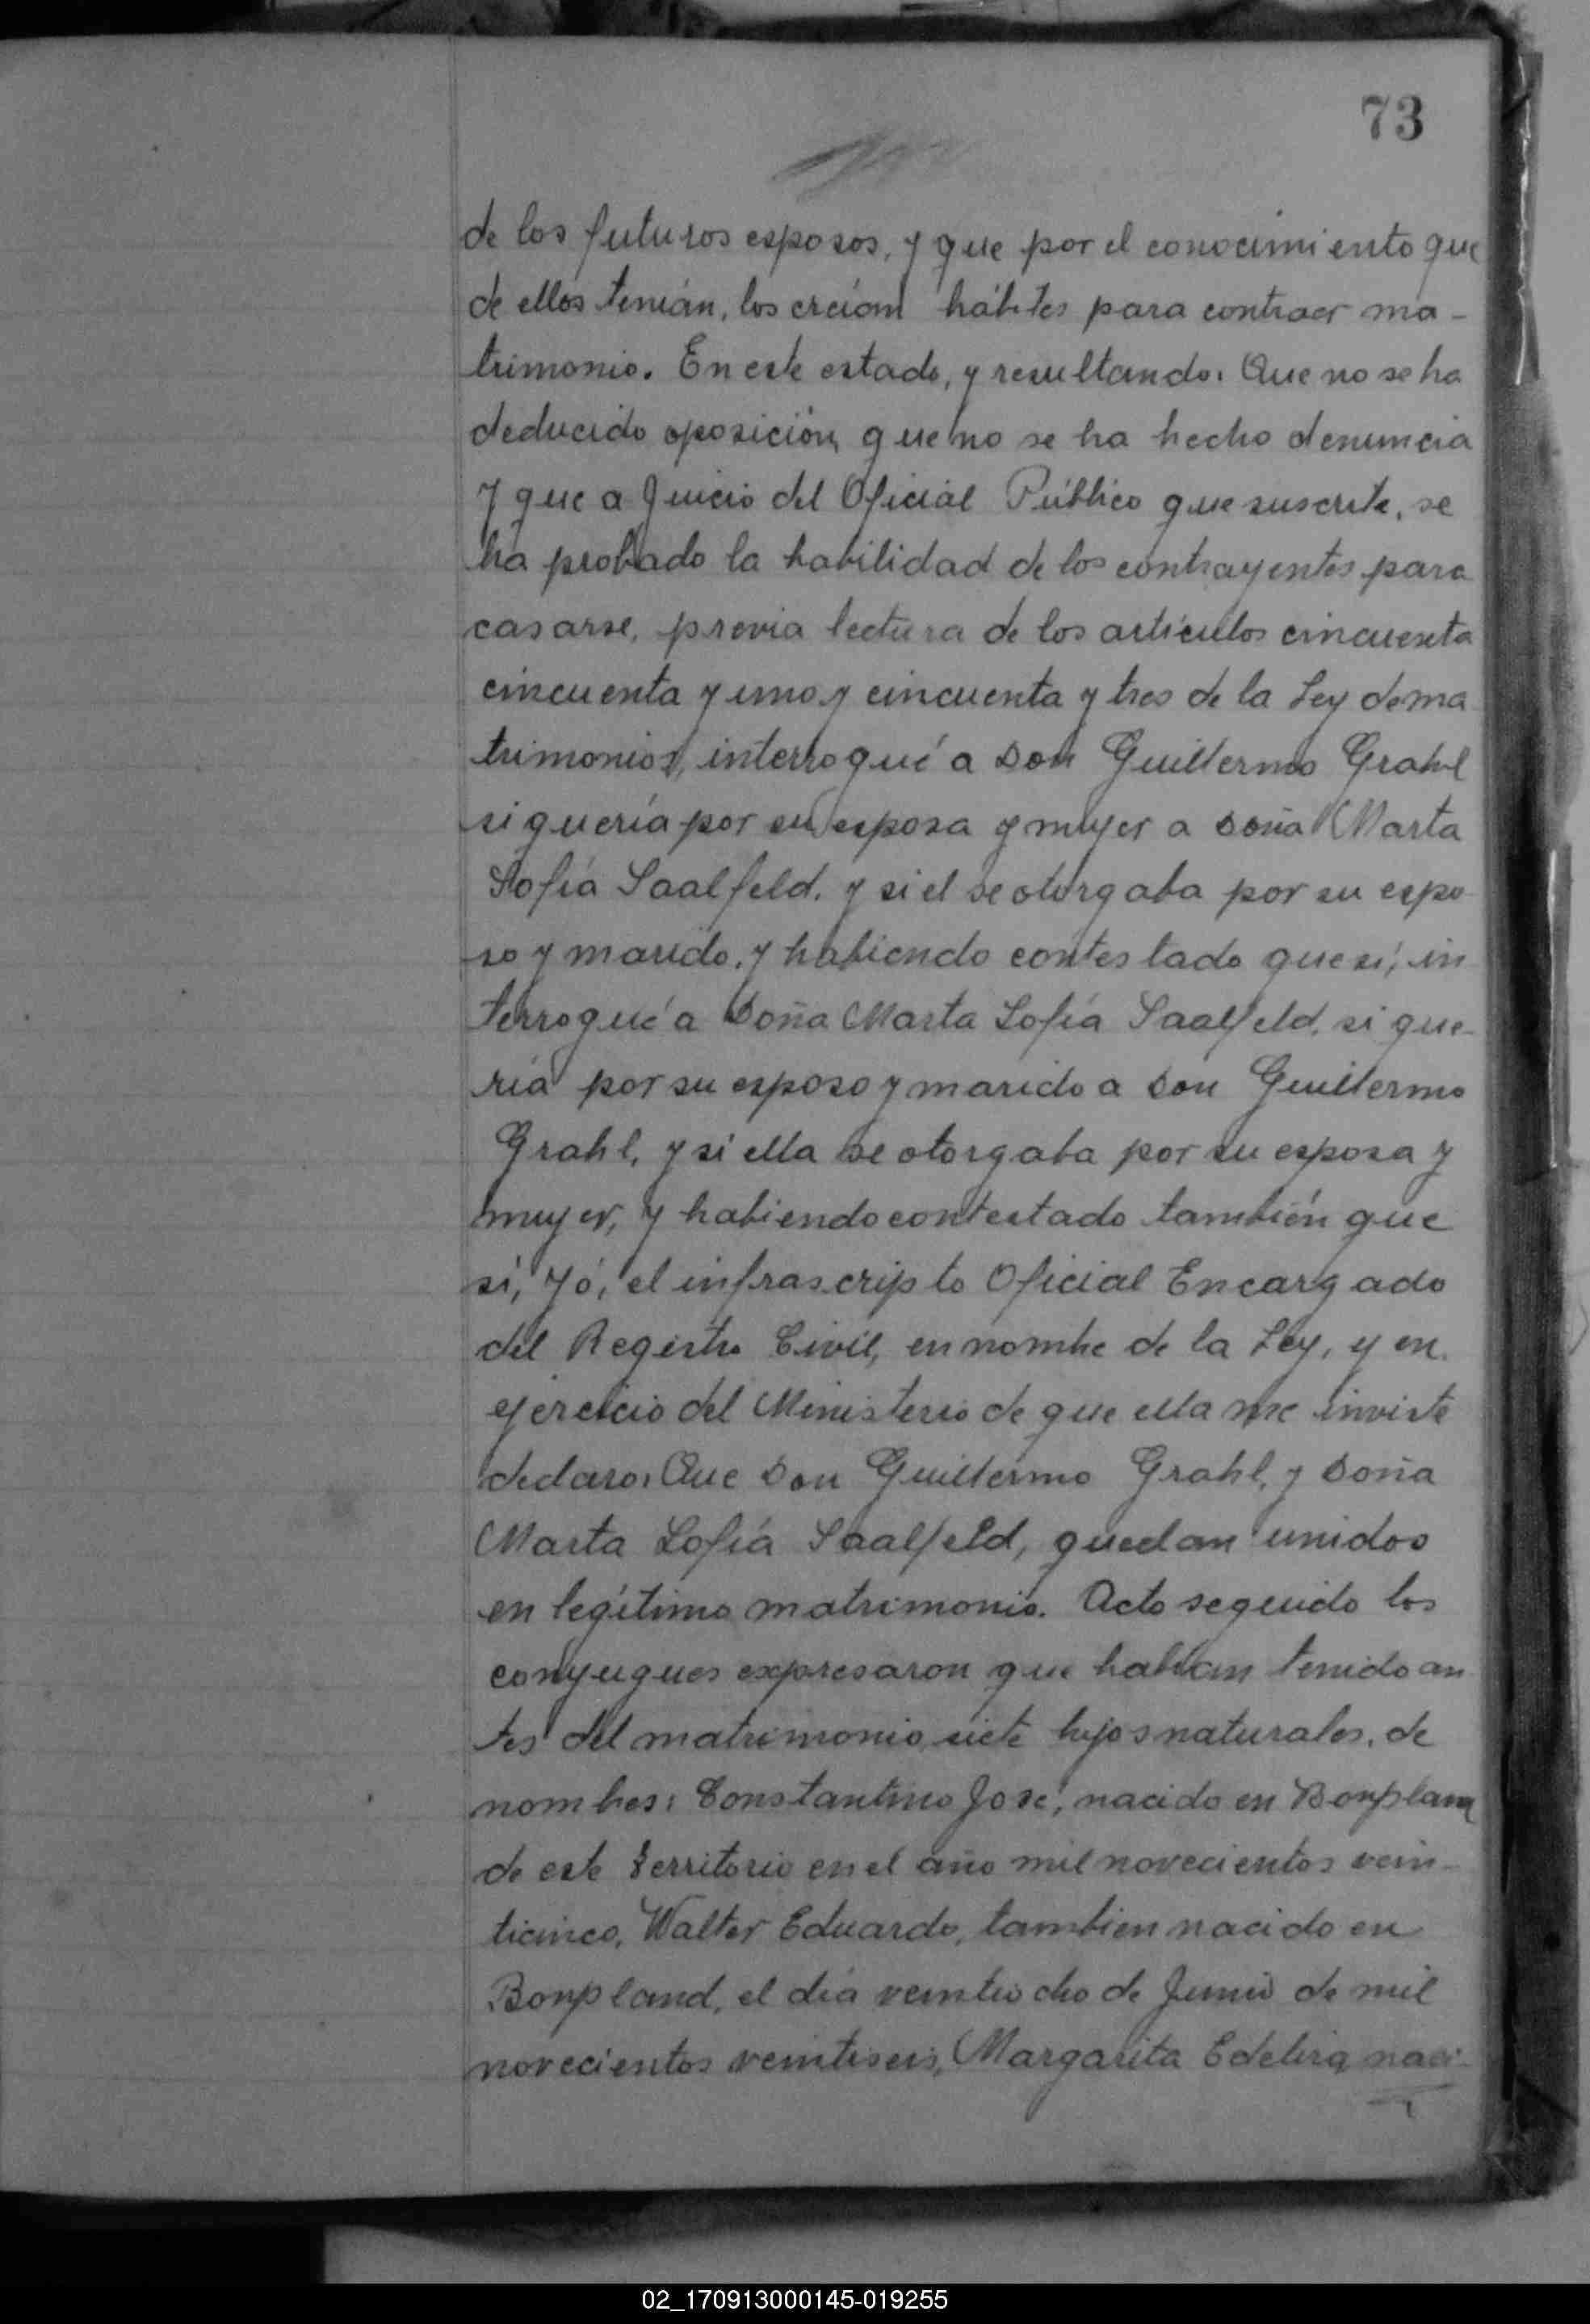 73
de los futuros esposos, y que por el conocimiento que
de ellos tenían, los creían hábiles para contraer ma-
trimonio. En este estado, y resultando: Que no se ha
deducido oposición, que no se ha hecho denuncia
y que a Juicio del Oficial Público que suscribe, se
ha probado la habilidad de los contrayentes para
casarse, previa lectura de los artículos cincuenta
cincuenta y uno y cincuenta y tres de la Ley de ma
trimonios, interrogué a Don Guillermo Grahl
si quería por su esposa y mujer a Doña Marta
Sofía Saalfeld, y si el se otorgaba por su espo
so y marido, y habiendo contestado que sí, in
terrogué a Doña Marta Sofía Saalfeld, si que-
ría por su esposo y marido a Don Guillermo
Grahl, y si ella se otorgaba por su esposa y
mujer, y habiendo contestado también que
sí, Yó, el infrascripto Oficial Encargado
del Registro Civil, en nombre de la Ley, y en
ejercicio del Ministerio de que ella me inviste
declaro: Que Don Guillermo Grahl, y Doña
Marta Sofía Saalfeld, quedan unidos
en legítimo matrimonio. Acto seguido los
conyugues expresaron que habían tenido an
tes del matrimonio siete hijos naturales, de
nombres: Constantino José, nacido en Bonpland
de este Territorio en el año mil novecientos vein-
ticinco, Walter Eduardo, tambien nacido en
Bonpland, el día veintiocho de Junio de mil
novecientos veintiseis, Margarita Edelira, naci-
02_170913000145-019255